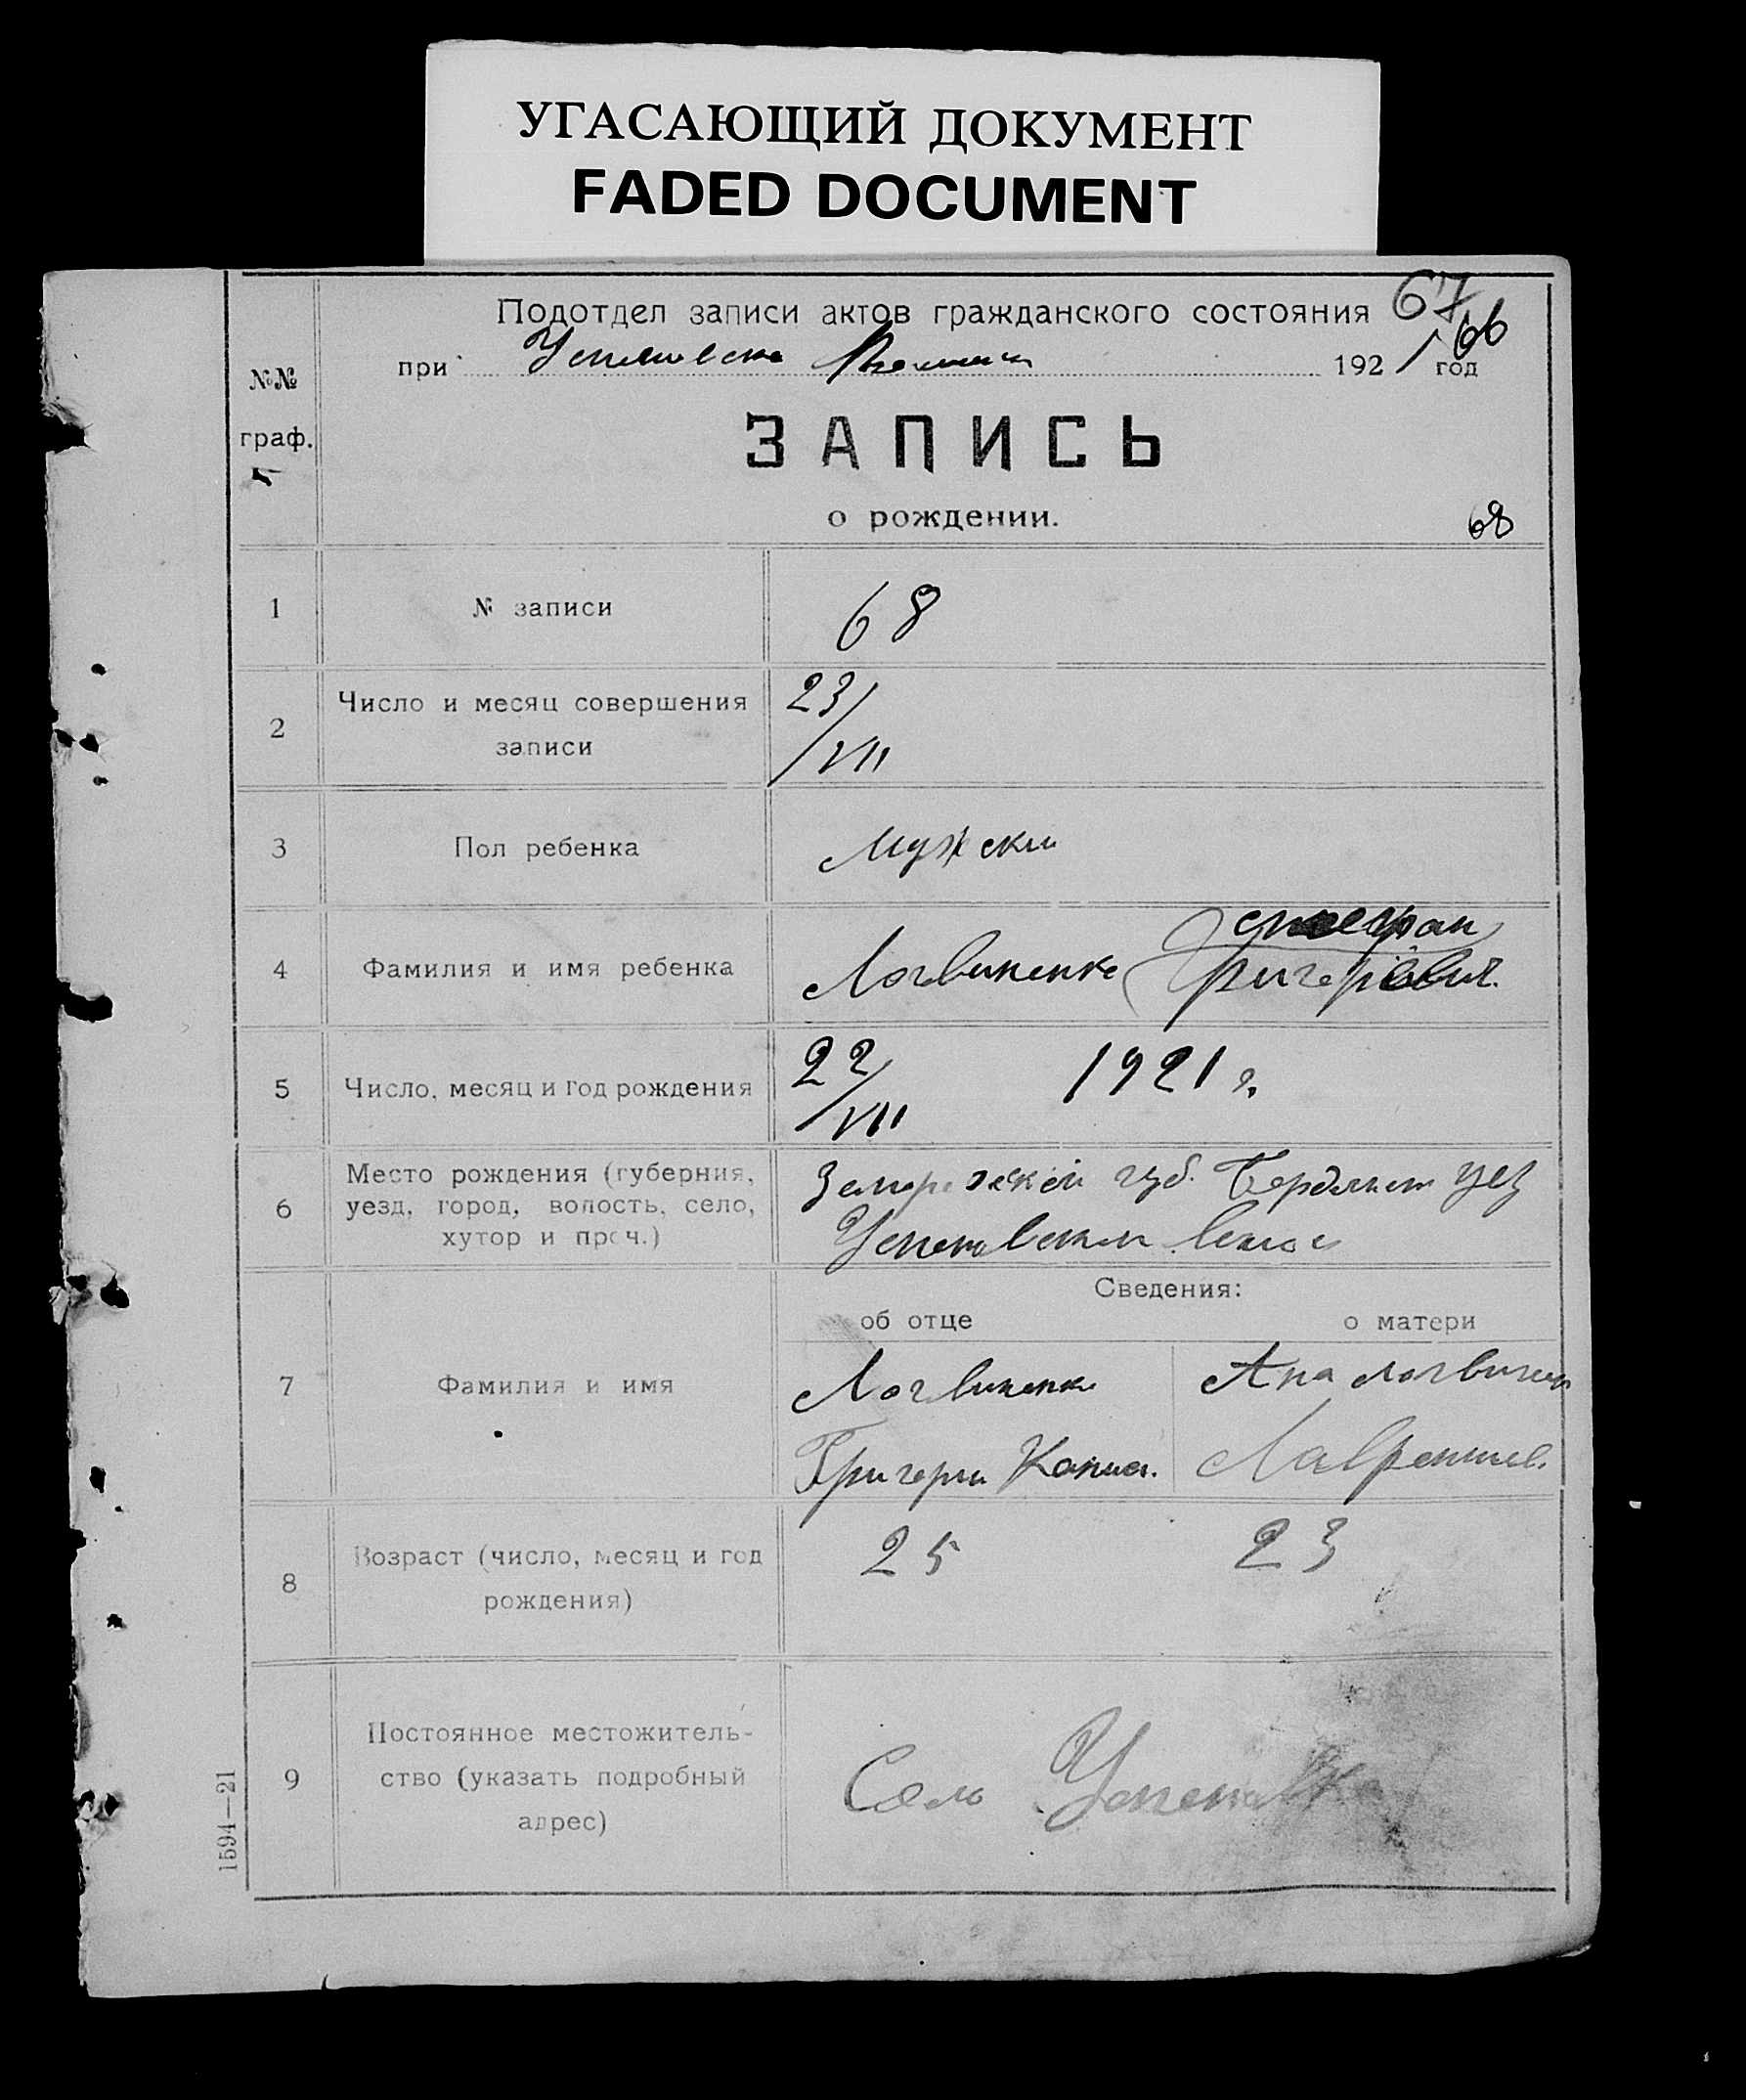 УГАСАЮЩИЙ ДОКУМЕНТ
FADED DOCUMENT
Подотдел записи актов гражданского состояния 67
66
при 1921 год
№№
граф.
ЗАПИСЬ
о рождении.
68
1 № записи 68
2 Число и месяц совершения
записи
23/VII
3 Пол ребенка Мужски
4 Фамилия и имя ребенка Логвиненко
5 Число, месяц и год рождения 22/VII 1921 г.
6 Место рождения (губерния,
уезд, город, волость, село,
хутор и проч.)
губ. уез
Сведения:
об отце о матери
7 Фамилия и имя
Логвиненко Ана
Григори
8 Возраст (число, месяц и год
рождения)
25 23
9 Постоянное местожитель-
ство (указать подробный
адрес)
Село
1594—21